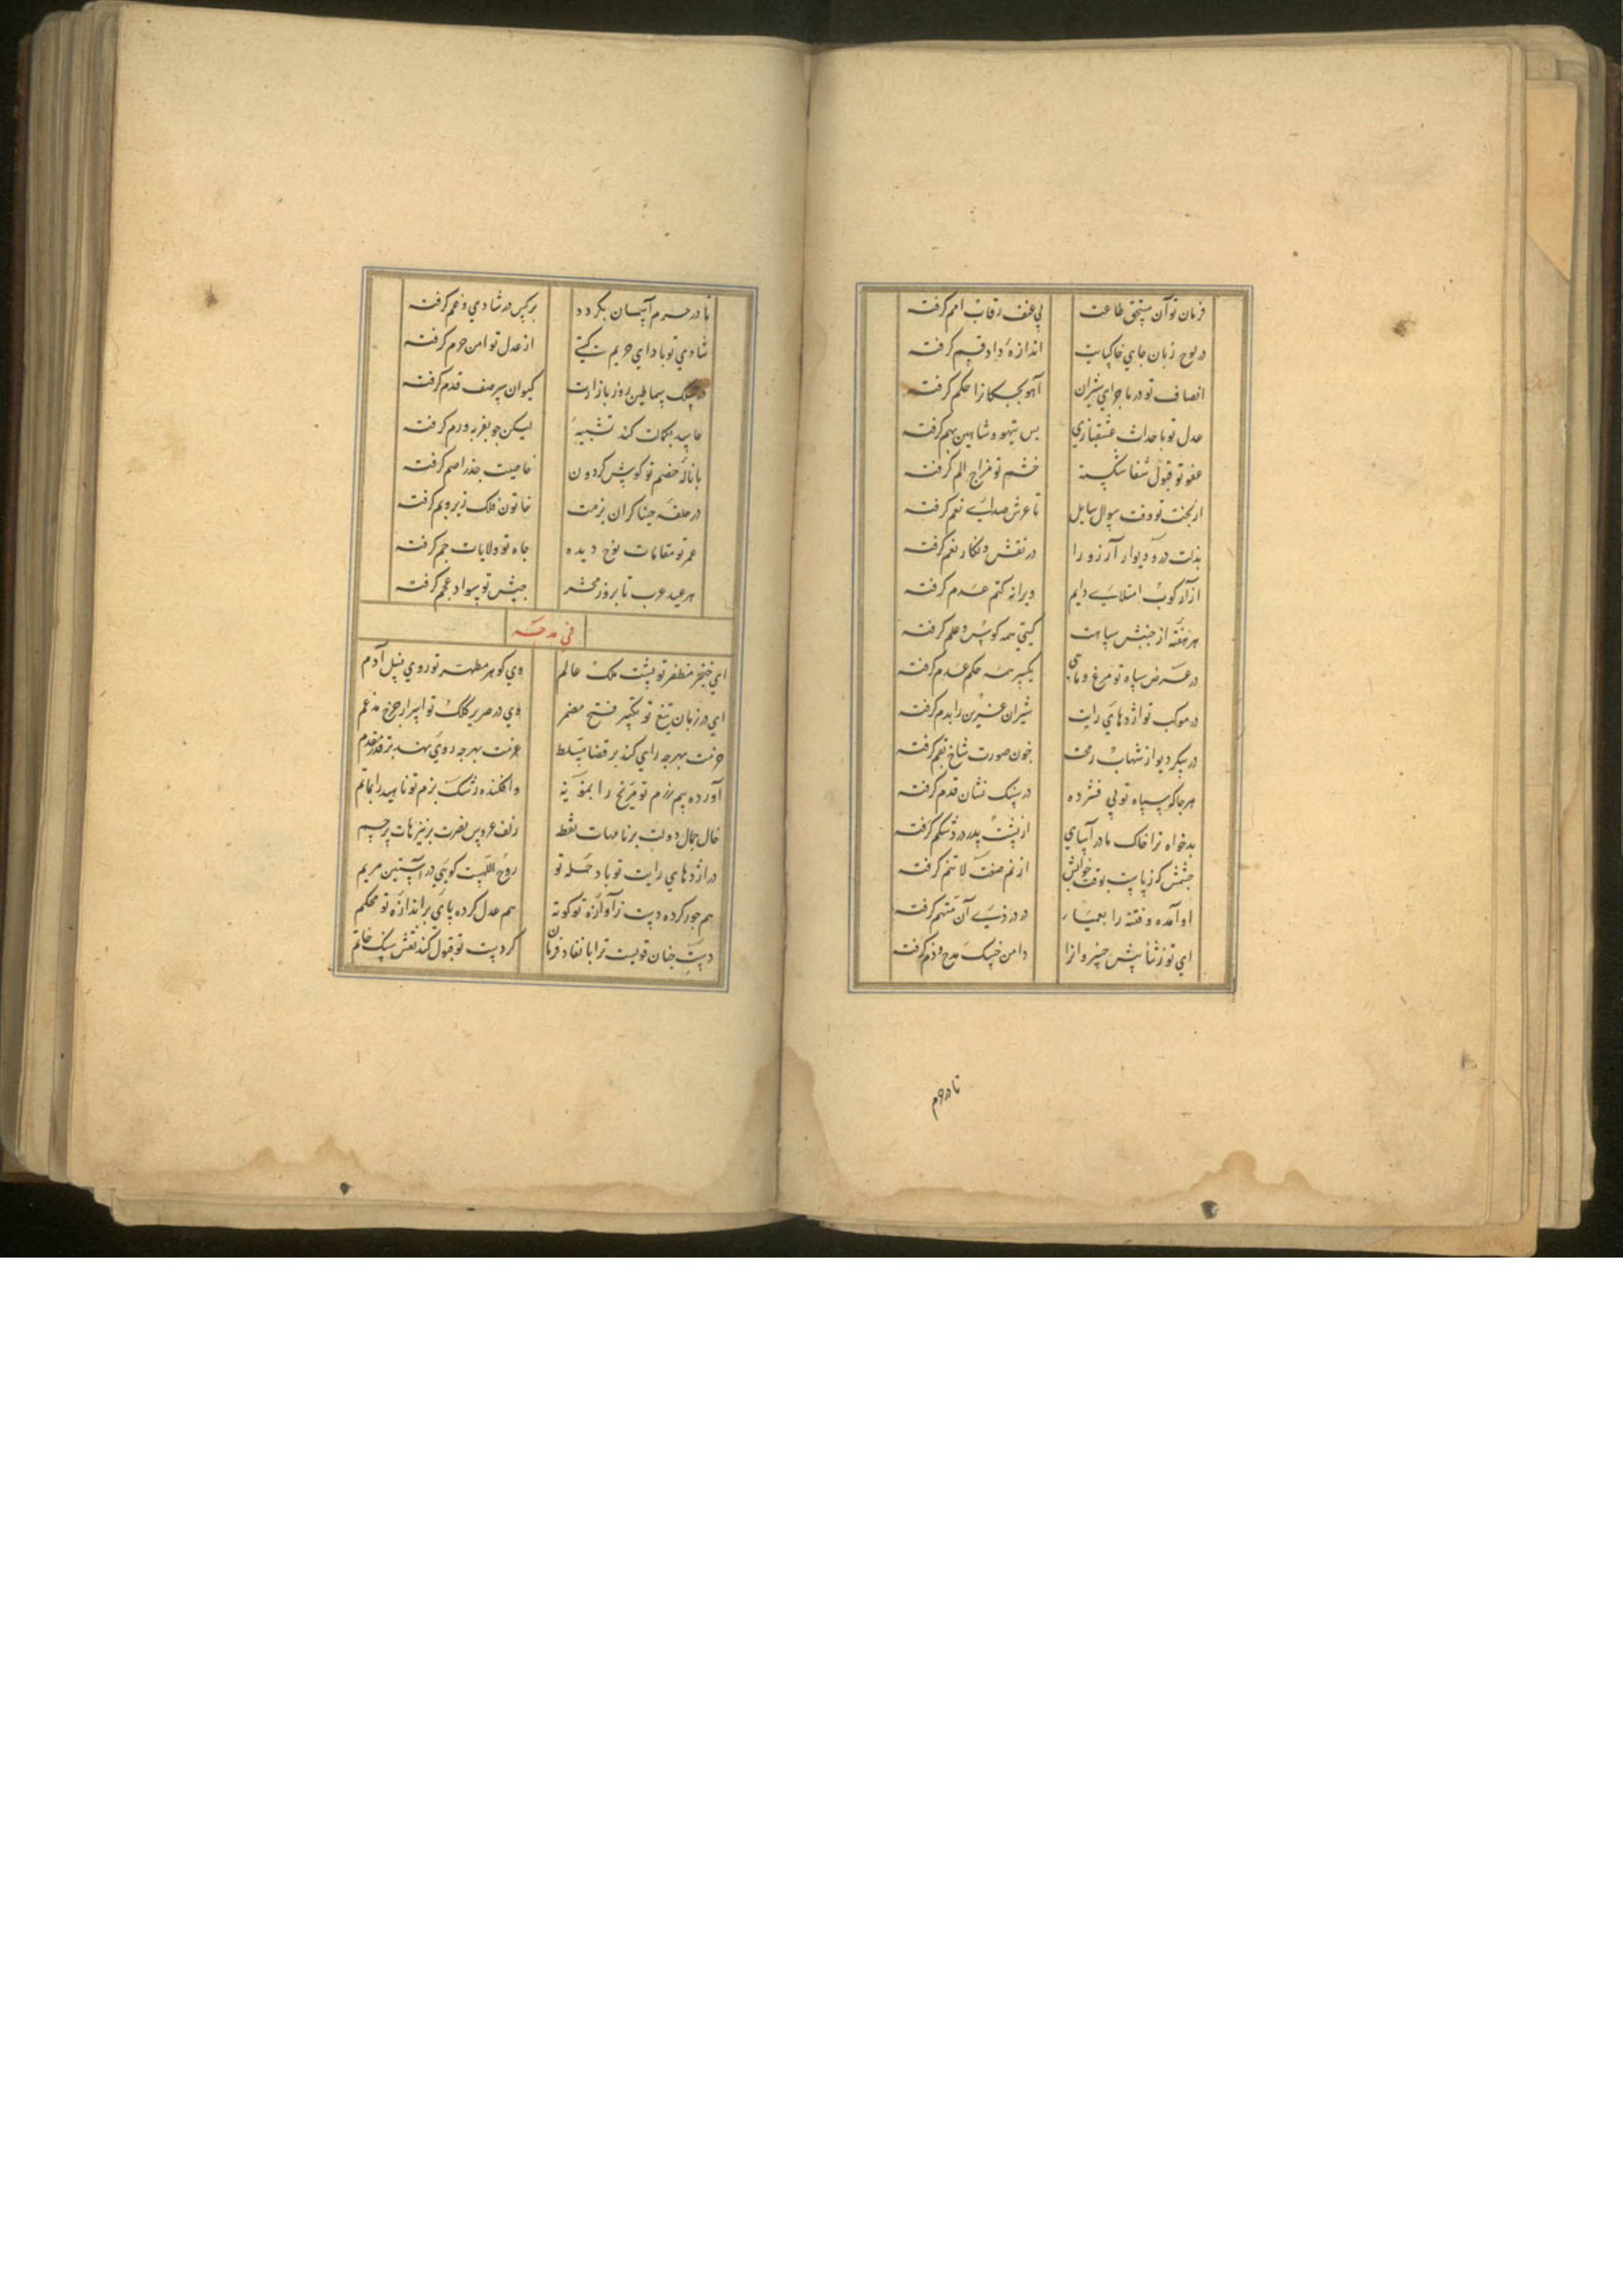 فرمان تو آن مستحق طاعت بی عنف رقاب امم گرفته
در لوح زبان جای خاکپایت اندازهٔ داد قسم گرفته
انصاف تو در ماجرای شیران آهو بچکانرا حکم گرفته
عدل تو باحداث عشقبازی بس تیهو و شاهین بهم گرفته
عفو تو قبول شفا شکسته خشم تو مزاج الم گرفته
از بخت تو وقت سوال سایل تا عرش صدای نعم گرفته
بذلت در و دیوار آرزو را در نقش و نگار نعم گرفته
از آز کوب امتلای دایم ویرانه کتم عدم گرفته
هر هفته از جنبش سپاهت گیتی همه کوس و علم گرفته
در عرض سپاه تو مرغ و ماهی یکسر همه حکم عدم گرفته
در موکب تو اژدهای رایت شیران عرین را بدم گرفته
در پیکر دیو از شهاب رمحت خون صورت شاخ بقم گرفته
هر جا که سپاه تو پی فشرده در سنگ نشان قدم گرفته
بدخواه ترا خاک مادر آسای از پشت پدر در شکم گرفته
چشمش که زیاست بوقت خوابش از نم صفت لاتنم گرفته
او آمده و فتنه را بعمیا در دزدی آن متهم گرفته
ای تو ز ثنا پیش خسروانرا دامن خسک مدح و ذم گرفته
تا در حرم
تا در حرم آسمان بگردد برکس در شادی و غم گرفته
شادی تو بادا ای حریمت گیتی از عدل تو امن حرم گرفته
سماطین روز بازارت کیوان سر صف قدم گرفته
حاسد بکمالت کند تشبیه لیکن چو بغربه ورم گرفته
با نالهٔ خصم تو گوش گردون خاصیت جذر اصم گرفته
در حلقه خنیاگران بزمت خاتون فلک زیر و بم گرفته
عمر تو مقامات نوح دیده جاه تو ولایات جم گرفته
هر عید عرب تا بروز محشر جیش تو سواد عجم گرفته
فی مدحه
ای خنجر مظفر تو پشت ملک عالم وی گوهر مطهر تو روی نسل آدم
ای در زبان تیغ تو تکبیر فتح مضمر وی در صریر کلک تو اسرار چرخ مدغم
حزمت بهرچه رای کند بر قضا مسلط عزمت بهرچه روی نهد بر قدر مقدم
آورده بیم رزم تو مریخ را بمویه وافکنده رشک بزم تو ناهید را بماتم
خال جمال دولت بر نامهات نقطه زلف عروس نصرت بر نیزهات پرچم
در اژدهای رایت تو باد حملهٔ تو روح اللهست گویی در آستین مریم
هم جور کرده دست ز آوازهٔ تو کوته هم عدل کرده پای بر اندازهٔ تو محکم
دست چنان قویست ترا با نفاذ فرمان کز دست تو قبول کند نقش سنگ خاتم